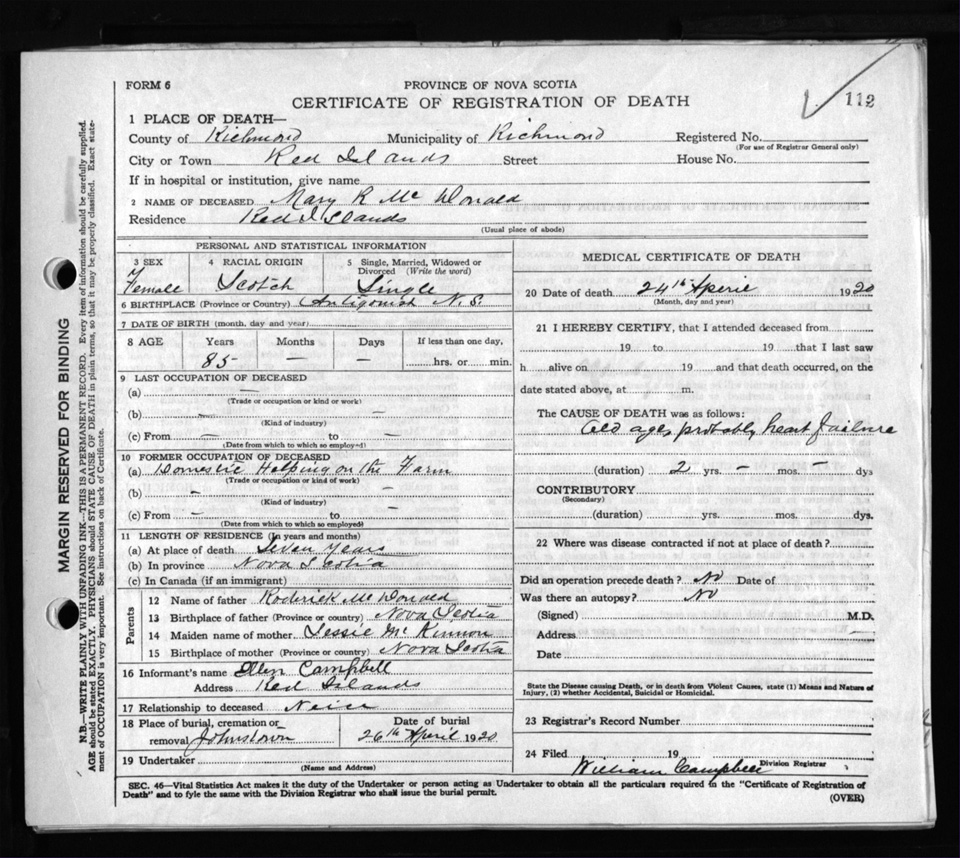 FORM 6
PROVINCE OF NOVA SCOTIA
CERTIFICATE OF REGISTRATION OF DEATH
112
1 PLACE OF DEATH—
County of Richmond Municipality of Richmond Registered No.
(For use of Registrar General only)
City or Town Red Islands Street House No.
If in hospital or institution, give name
2 NAME OF DECEASED Mary R McDonald
Residence Red Islands
(Usual place of abode)
PERSONAL AND STATISTICAL INFORMATION
3 SEX 4 RACIAL ORIGIN 5 Single, Married, Widowed or Divorced (Write the word)
Female Scotch Single
6 BIRTHPLACE (Province or Country) Antigonish N.S.
7 DATE OF BIRTH (month, day and year)
8 AGE Years Months Days If less than one day,
85 — — hrs. or min.
9 LAST OCCUPATION OF DECEASED
(a) —
(Trade or occupation or kind or work)
(b) — —
(Kind of industry)
(c) From — to —
(Date from which to which so employed)
10 FORMER OCCUPATION OF DECEASED
(a) Domestic Helping on the Farm
(Trade or occupation or kind of work)
(b) — —
(Kind of industry)
(c) From — to —
(Date from which to which so employed)
11 LENGTH OF RESIDENCE (In years and months)
(a) At place of death Seven Years
(b) In province Nova Scotia
(c) In Canada (if an immigrant)
Parents
12 Name of father Roderick McDonald
13 Birthplace of father (Province or country) Nova Scotia
14 Maiden name of mother Jessie McKinnon
15 Birthplace of mother (Province or country) Nova Scotia
16 Informant's name Ellen Campbell
Address Red Islands
17 Relationship to deceased Neice
18 Place of burial, cremation or removal Johnstown
Date of burial
26th April 1920
19 Undertaker
(Name and Address)
MEDICAL CERTIFICATE OF DEATH
20 Date of death 24th Aperil 1920
(Month, day and year)
21 I HEREBY CERTIFY, that I attended deceased from
19 to 19 that I last saw
h alive on 19 and that death occurred, on the
date stated above, at m.
The CAUSE OF DEATH was as follows:
Old age probably heart failure
(duration) 2 yrs. — mos. — dys
CONTRIBUTORY
(Secondary)
(duration) yrs. mos. dys.
22 Where was disease contracted if not at place of death?
Did an operation precede death? No Date of
Was there an autopsy? No
(Signed) M.D.
Address —
Date
State the Disease causing Death, or in death from Violent Causes, state (1) Means and Nature of
Injury, (2) whether Accidental, Suicidal or Homicidal.
23 Registrar's Record Number
24 Filed 19
William Campbell Division Registrar
SEC. 46—Vital Statistics Act makes it the duty of the Undertaker or person acting as Undertaker to obtain all the particulars required in the "Certificate of Registration of
Death" and to fyle the same with the Division Registrar who shall issue the burial permit.
(OVER)
MARGIN RESERVED FOR BINDING
N.B.—WRITE PLAINLY WITH UNFADING INK—THIS IS A PERMANENT RECORD. Every item of information should be carefully supplied.
AGE should be stated EXACTLY. PHYSICIANS should STATE CAUSE OF DEATH in plain terms, so that it may be properly classified. Exact state-
ment of OCCUPATION is very important. See instructions on back of Certificate.